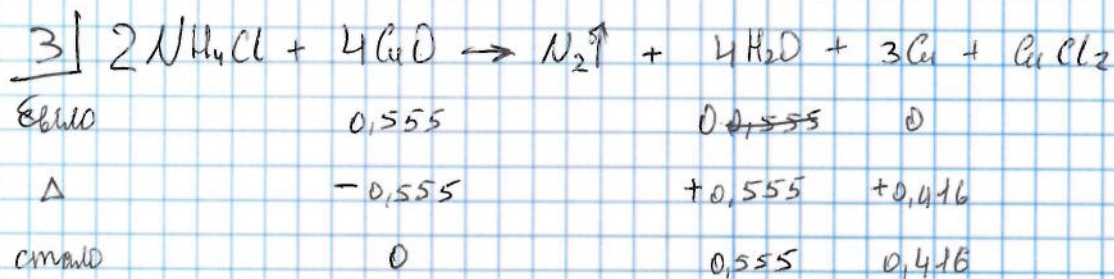 3 2NH₄Cl + 4CuO → N₂↑ + 4H₂O + 3Cu + CuCl₂
было 0,555 0 0,555 0
Δ -0,555 +0,555 +0,416
стало 0 0,555 0,416